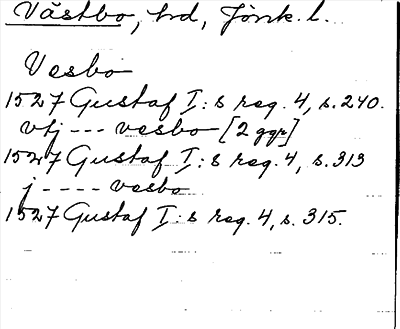 Västbo, hd, Jönk. l.
Vesbo
1527 Gustaf I:s reg. 4, s. 240.
vtj --- vesbo [2 ggr]
1527 Gustaf I:s reg. 4, s. 313
j ---- vesbo
1527 Gustaf I:s reg. 4, s. 315.